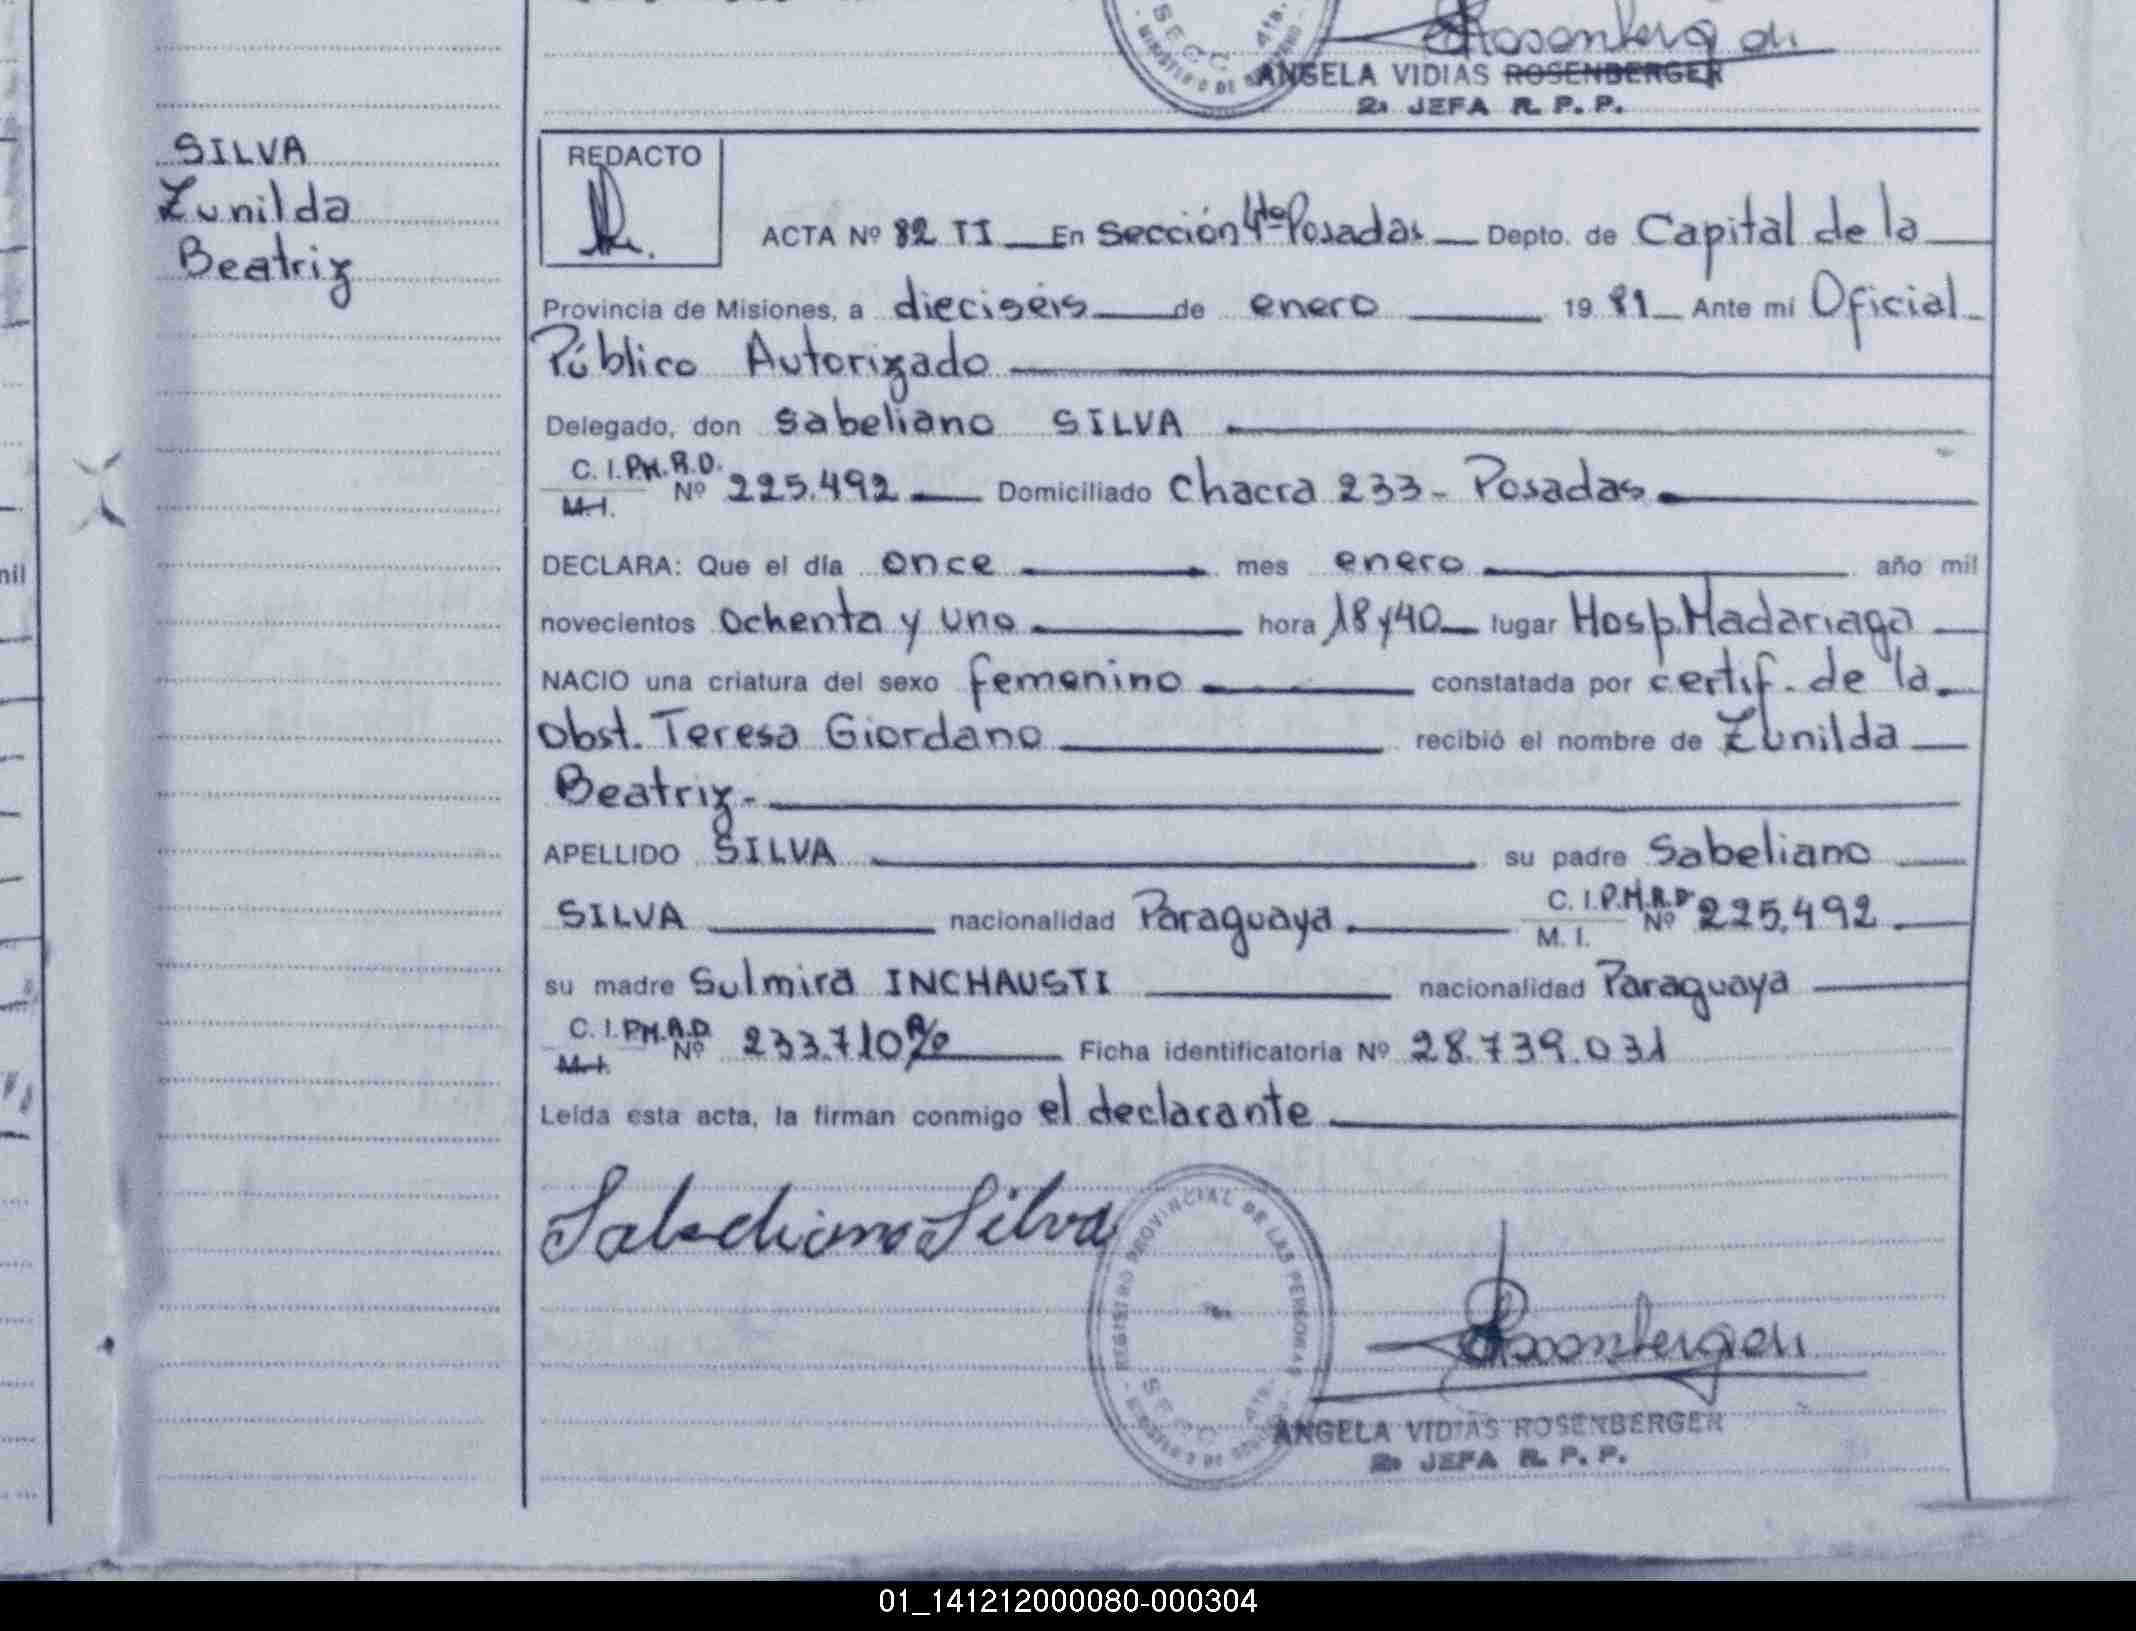 Rosenberger
ANGELA VIDIAS ROSENBERGER
2a JEFA R. P. P.
SILVA
Zunilda
Beatriz
REDACTO
ACTA Nº 82 TI En Sección 4ta Posadas Depto. de Capital de la
Provincia de Misiones, a dieciséis de enero 1981 Ante mí Oficial
Público Autorizado
Delegado, don Sabeliano SILVA
C. I. P.M.R.D.
M.I. Nº 225.492 Domiciliado Chacra 233 - Posadas
DECLARA: Que el día once mes enero año mil
novecientos ochenta y uno hora 18 y 40 lugar Hosp. Madariaga
NACIO una criatura del sexo femenino constatada por certif. de la
Obst. Teresa Giordano recibió el nombre de Zunilda
Beatriz.
APELLIDO SILVA su padre Sabeliano
SILVA nacionalidad Paraguaya C. I. P.M.R.D
M. I. Nº 225.492
su madre Sulmira INCHAUSTI nacionalidad Paraguaya
C. I. P.M.R.D
M.I. Nº 233.710 Ficha identificatoria Nº 28.739.031
Leída esta acta, la firman conmigo el declarante
Sabeliano Silva
REGISTRO PROVINCIAL DE LAS PERSONAS
SECC. 4ta.
ANGELA VIDIAS ROSENBERGER
2a JEFA R. P. P.
01_141212000080-000304